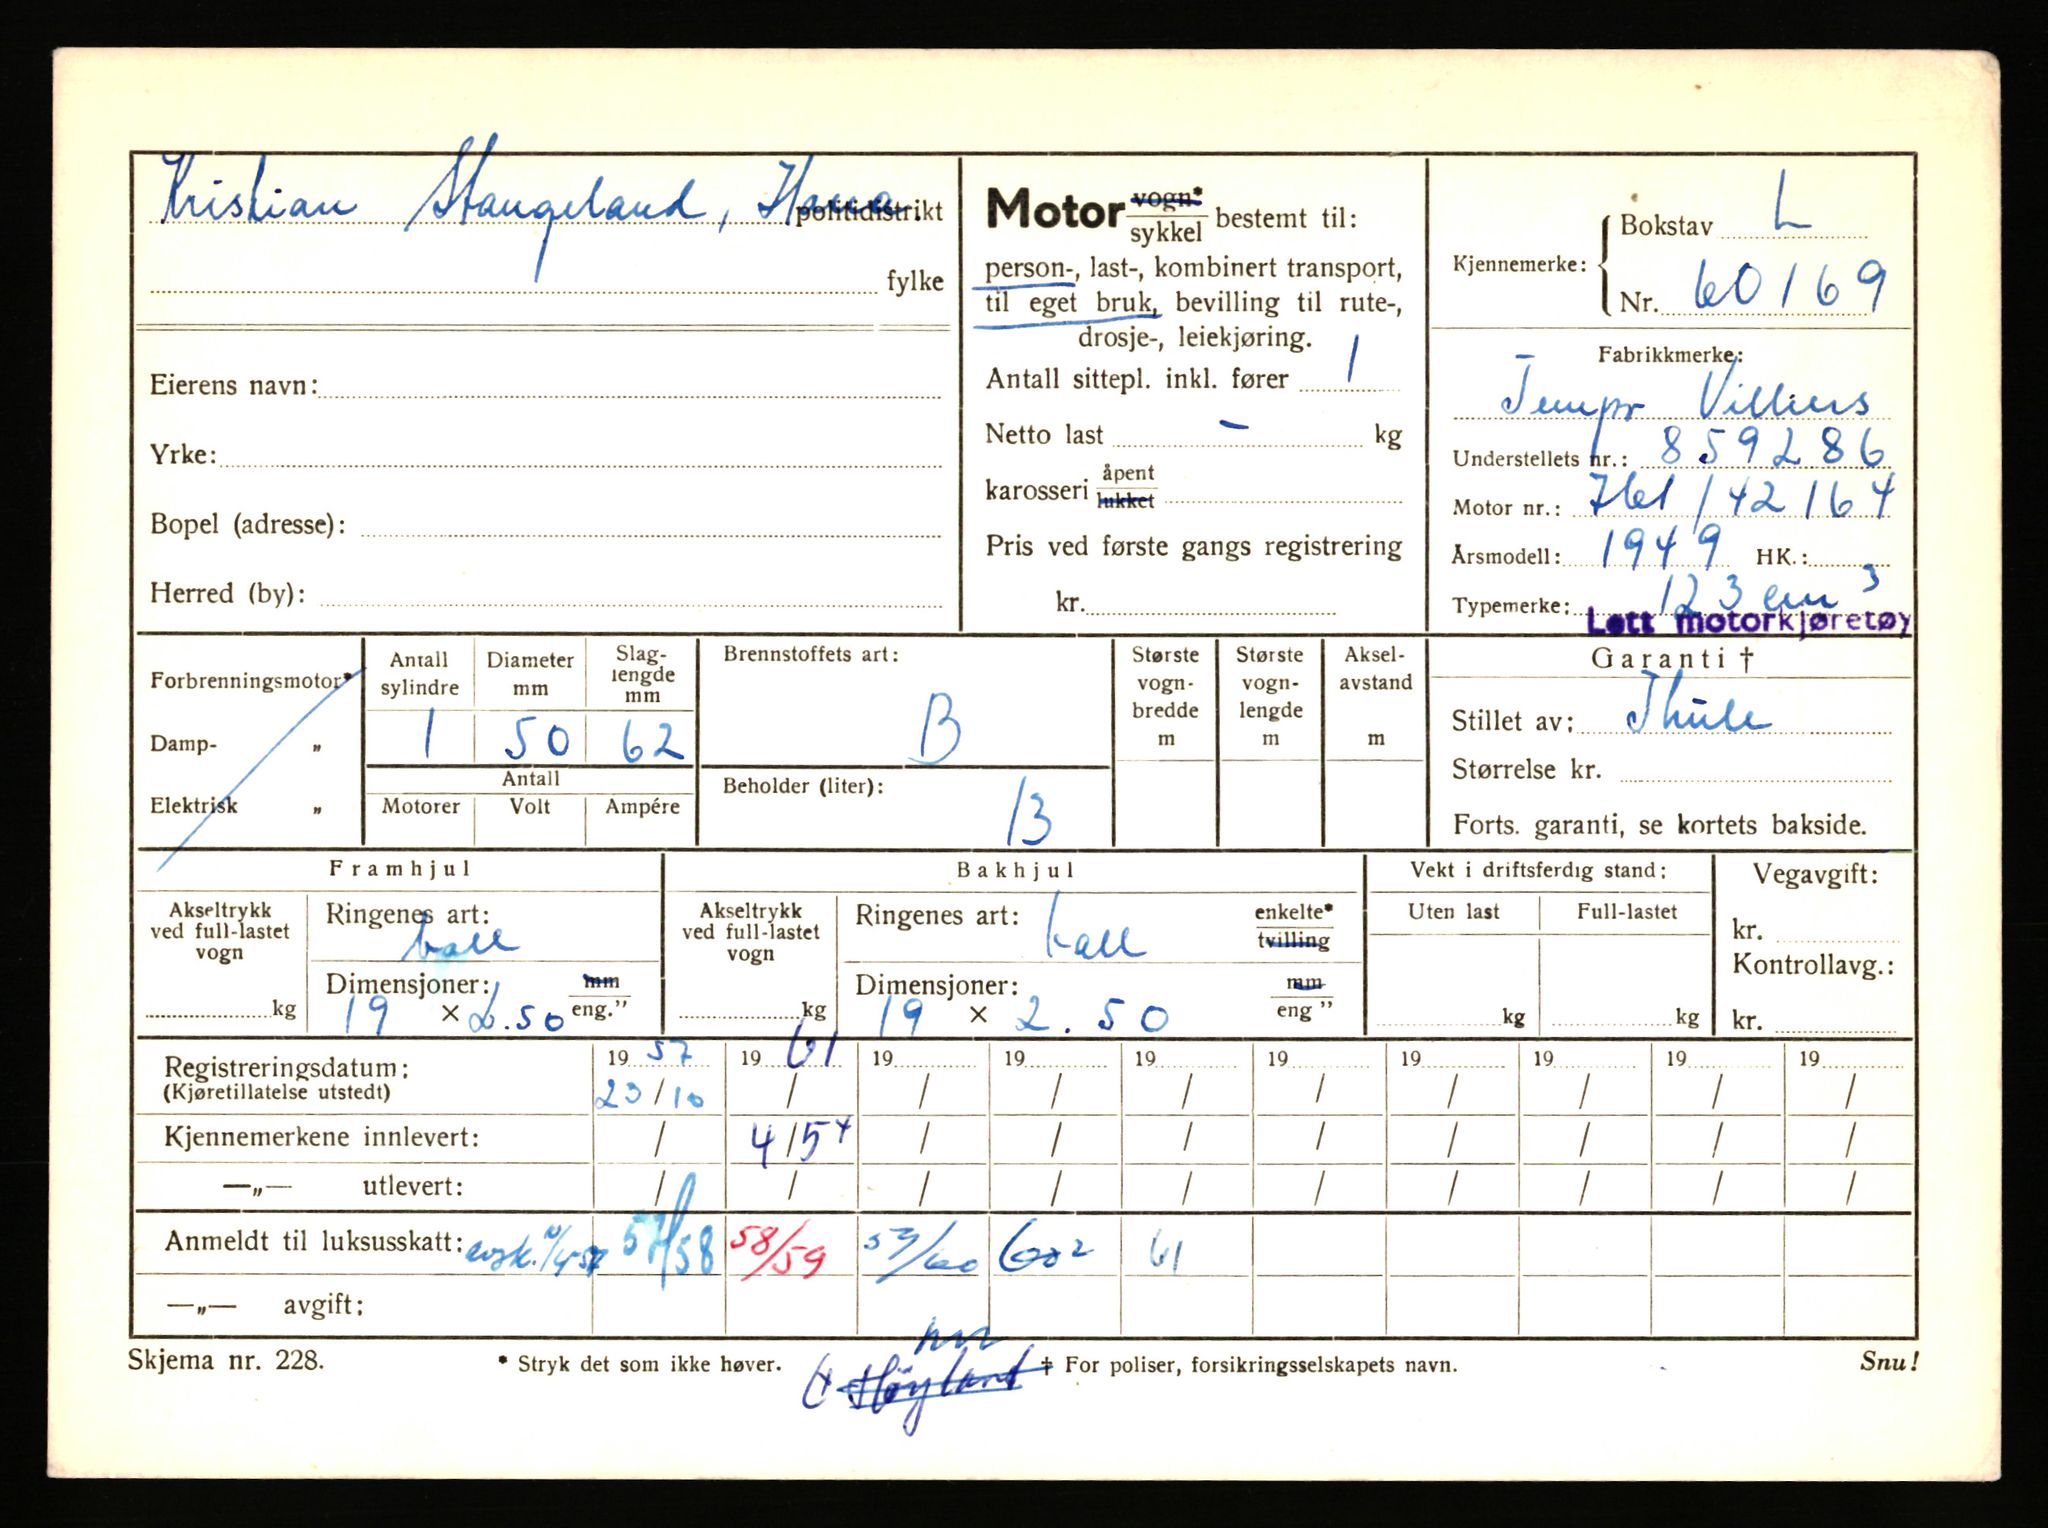 Kristian Stangeland, Hana politidistrikt
fylke
Eierens navn:
Yrke:
Bopel (adresse):
Herred (by):
Motor vogn* / sykkel bestemt til:
person-, last-, kombinert transport,
til eget bruk, bevilling til rute-,
drosje-, leiekjøring.
Antall sittepl. inkl. fører 1
Netto last - kg
karosseri åpent / lukket
Pris ved første gangs registrering
kr.
Kjennemerke: Bokstav L
Nr. 60169
Fabrikkmerke:
Tempo Villiers
Understellets nr.: 859286
Motor nr.: 761/42164
Årsmodell: 1949 HK.:
Typemerke: 123 cm³
Lett motorkjøretøy
Forbrenningsmotor*
Damp- „
Elektrisk „
Antall sylindre
Diameter mm
Slag-lengde mm
1 50 62
Antall
Motorer Volt Ampére
Brennstoffets art:
B
Beholder (liter):
13
Største vogn-bredde m
Største vogn-lengde m
Aksel-avstand m
Garanti †
Stillet av: Thule
Størrelse kr.
Forts. garanti, se kortets bakside.
Framhjul
Akseltrykk ved full-lastet vogn
kg
Ringenes art:
ball
Dimensjoner: mm / eng."
19 × 2.50
Bakhjul
Akseltrykk ved full-lastet vogn
kg
Ringenes art: ball enkelte* / tvilling
Dimensjoner: mm / eng "
19 × 2.50
Vekt i driftsferdig stand:
Uten last Full-lastet
kg kg
Vegavgift:
kr.
Kontrollavg.:
kr.
Registreringsdatum: 19 57 19 61 19 19 19 19 19 19 19 19
(Kjøretillatelse utstedt) 23/10 / / / / / / / / /
Kjennemerkene innlevert: / 4/5 / / / / / / / /
—„— utlevert: / / / / / / / / / /
Anmeldt til luksusskatt: 57/58 58/59 59/60 61
—„— avgift:
Skjema nr. 228.
* Stryk det som ikke høver.
Høyland
† For poliser, forsikringsselskapets navn.
Snu!